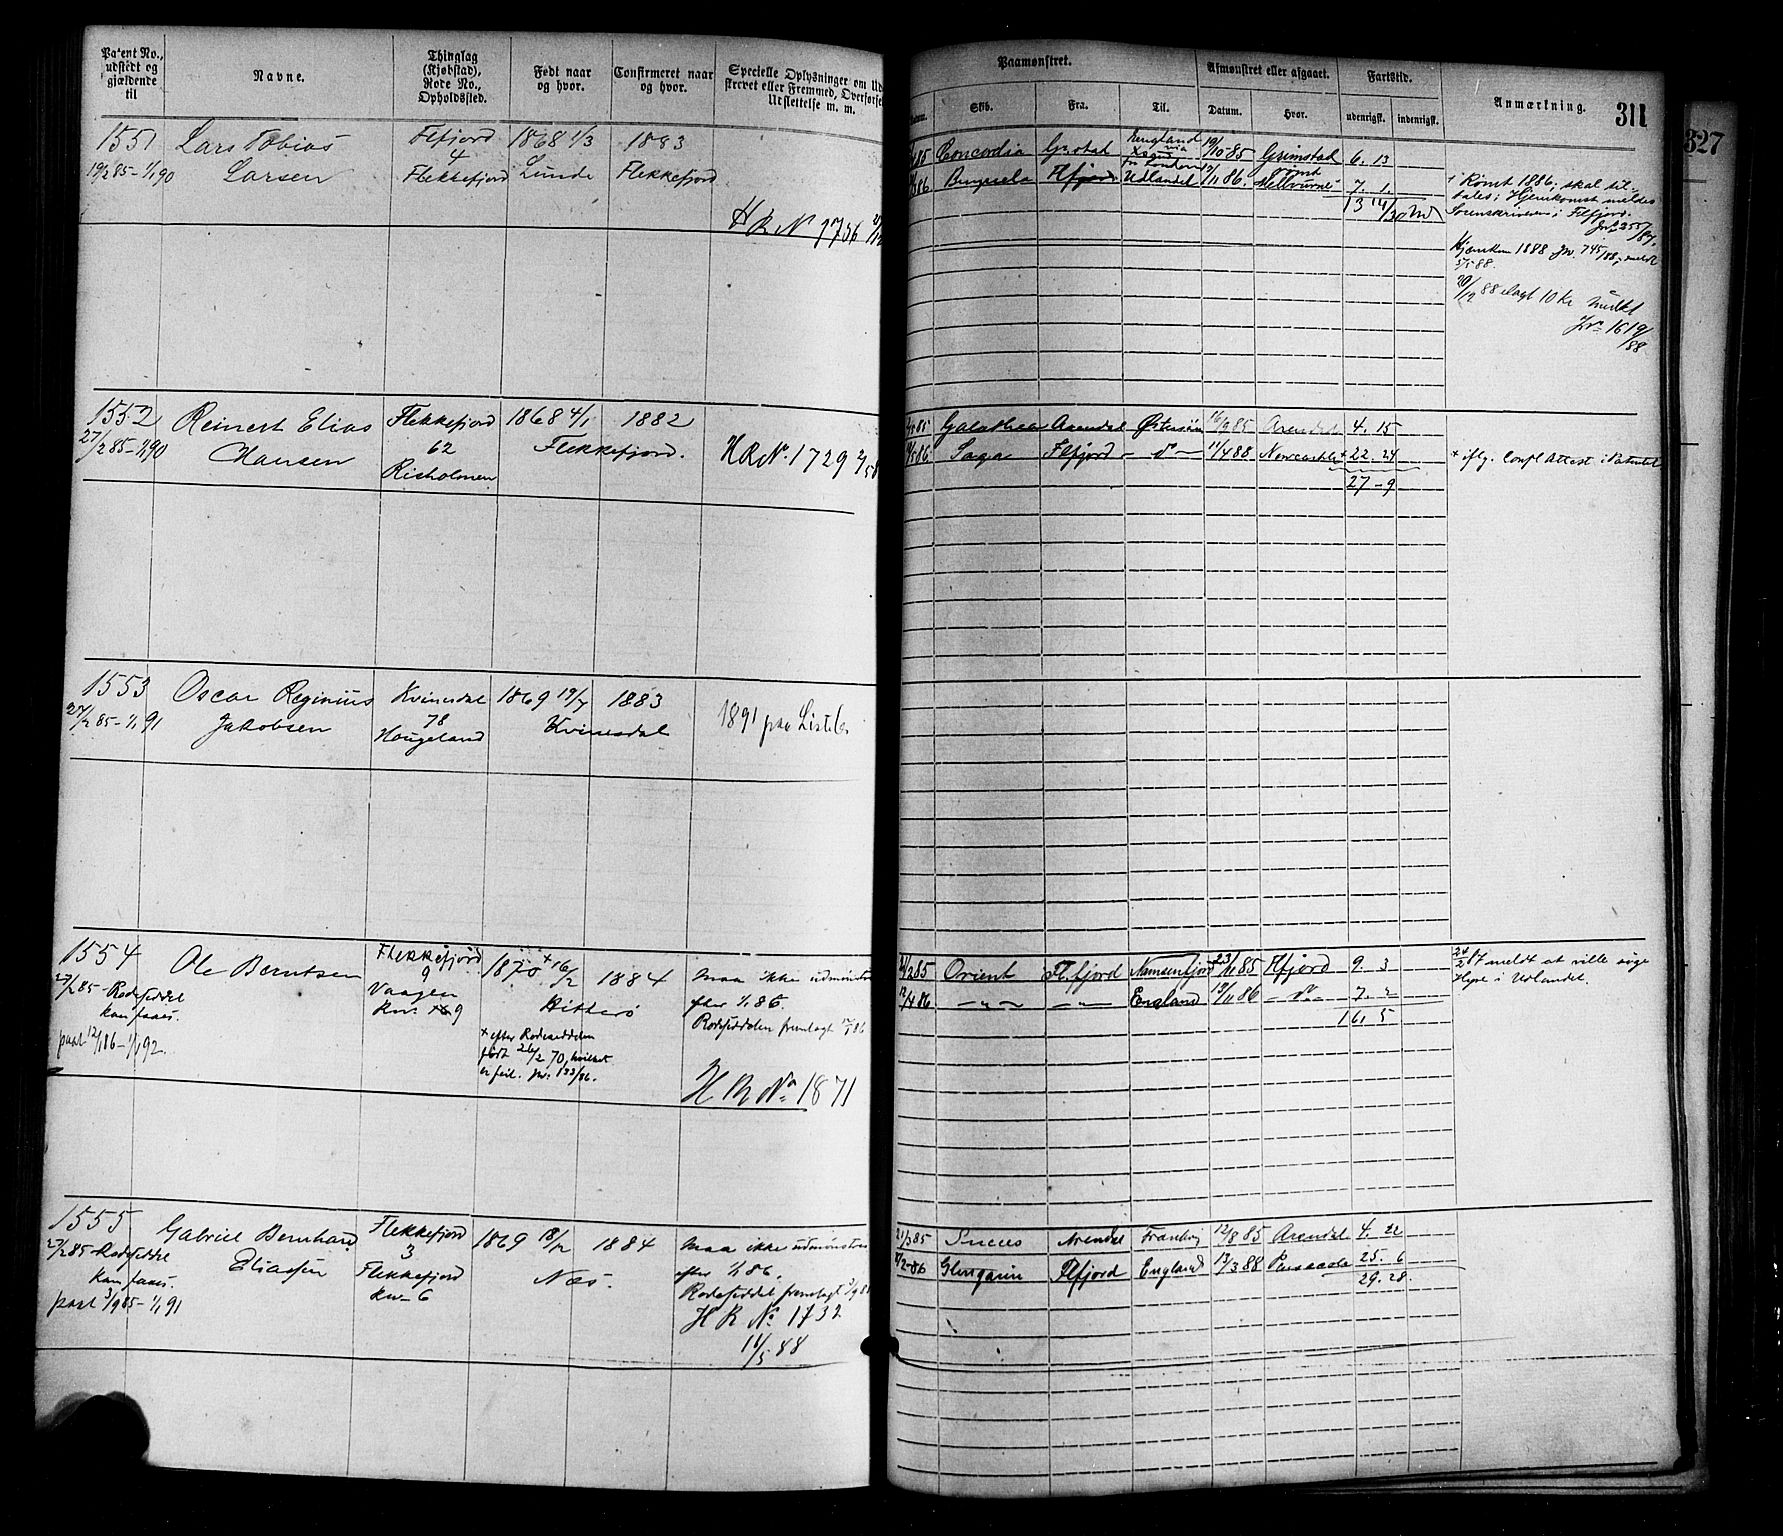 Patent No., udstedt og gjældende til
Navne.
Thinglag (Kjøbstad), Rode No., Opholdssted.
Født naar og hvor.
Confirmeret naar og hvor.
Specielle Oplysninger om Ud
skrevet eller Fremmed, Overførsel
Udslettelse m. m.
Paamønstret.
Skib.
Fra.
Til.
Afmønstret eller afgaaet.
Datum.
Hvor.
Fartstid.
udenrigsk.
indenrigsk.
Anmærkning.
311
327
1551
19/2 85 - 1/1 90
Lars Tobias
Larsen
Flfjord
4
Flekkefjord
1868 1/3
Lunde
1883
Flekkefjord
H R No 1736
Concordia
England
19/10 85
Grimstad
6. 13
Udlandet
/11 86.
Melbourne
7. 1.
13 14/30
Rømt 1886, skal til-
tales; Hjemkomst meldes
Sorenskriveren i Flfjord.
Hjemkom 1888 Jn. 745/88, meldt
5/5 88.
20/12 88 10 Kr Mulkt
Jno 1619/88
1552
27/2 85 - 1/1 90
Reinert Elias
Hansen
Flekkefjord
62
Risholmen
1868 4/1
1882
Flekkefjord.
H R No. 1729
Galathea
Arendal
Østersøen
16/9 85
Arendal
4. 15
Saga
Flfjord
- do -
11/4 88
Newcastle
+ 22. 24
27 - 9
+ Attest i
1553
27/2 85 - 1/1 91
Oscar Reginius
Jakobsen
Kvinesdal
78
Haugeland
1869 19/7
1883
Kvinesdal
1891 paa Liste
1554
27/2 85 - Rodeseddel
kan faaes.
12/1 86 - 1/1 92.
Ole Berntsen
Flekkefjord
9
Vaagen
9
1870 + 16/2
1884
Hitterø
+ efter Rodeseddelen
født 26/2 70, hvilket
er feil. Jn: 133/86.
maa ikke udmønstres
efter 1/1 86.
Rodeseddelen fremlagt
H R No. 1871
Orient
Flfjord
Namsenfjord
23/11 85
Flfjord
9. 3
12/4 86
- " -
- " -
England
13/11 86
- do -
7. 2
16, 5
24/2 87 meldt at ville søge
Hyre i Udlandet.
1555
27/2 85 - Rodeseddel
kan faaes.
3/9 85 - 1/1 91
Gabriel Bernhard
Eliassen
Flekkefjord
3
Flekkefjord
6
1869 18/12
1884
Næs.
maa ikke udmønstres
efter 1/1 86.
Rodeseddel fremlagt
H R No. 1732
11/5 88
21/3 85
Succes
Arendal
12/8 85
Arendal
4. 22
Flfjord
England
13/3 88
25. 6
29. 28.